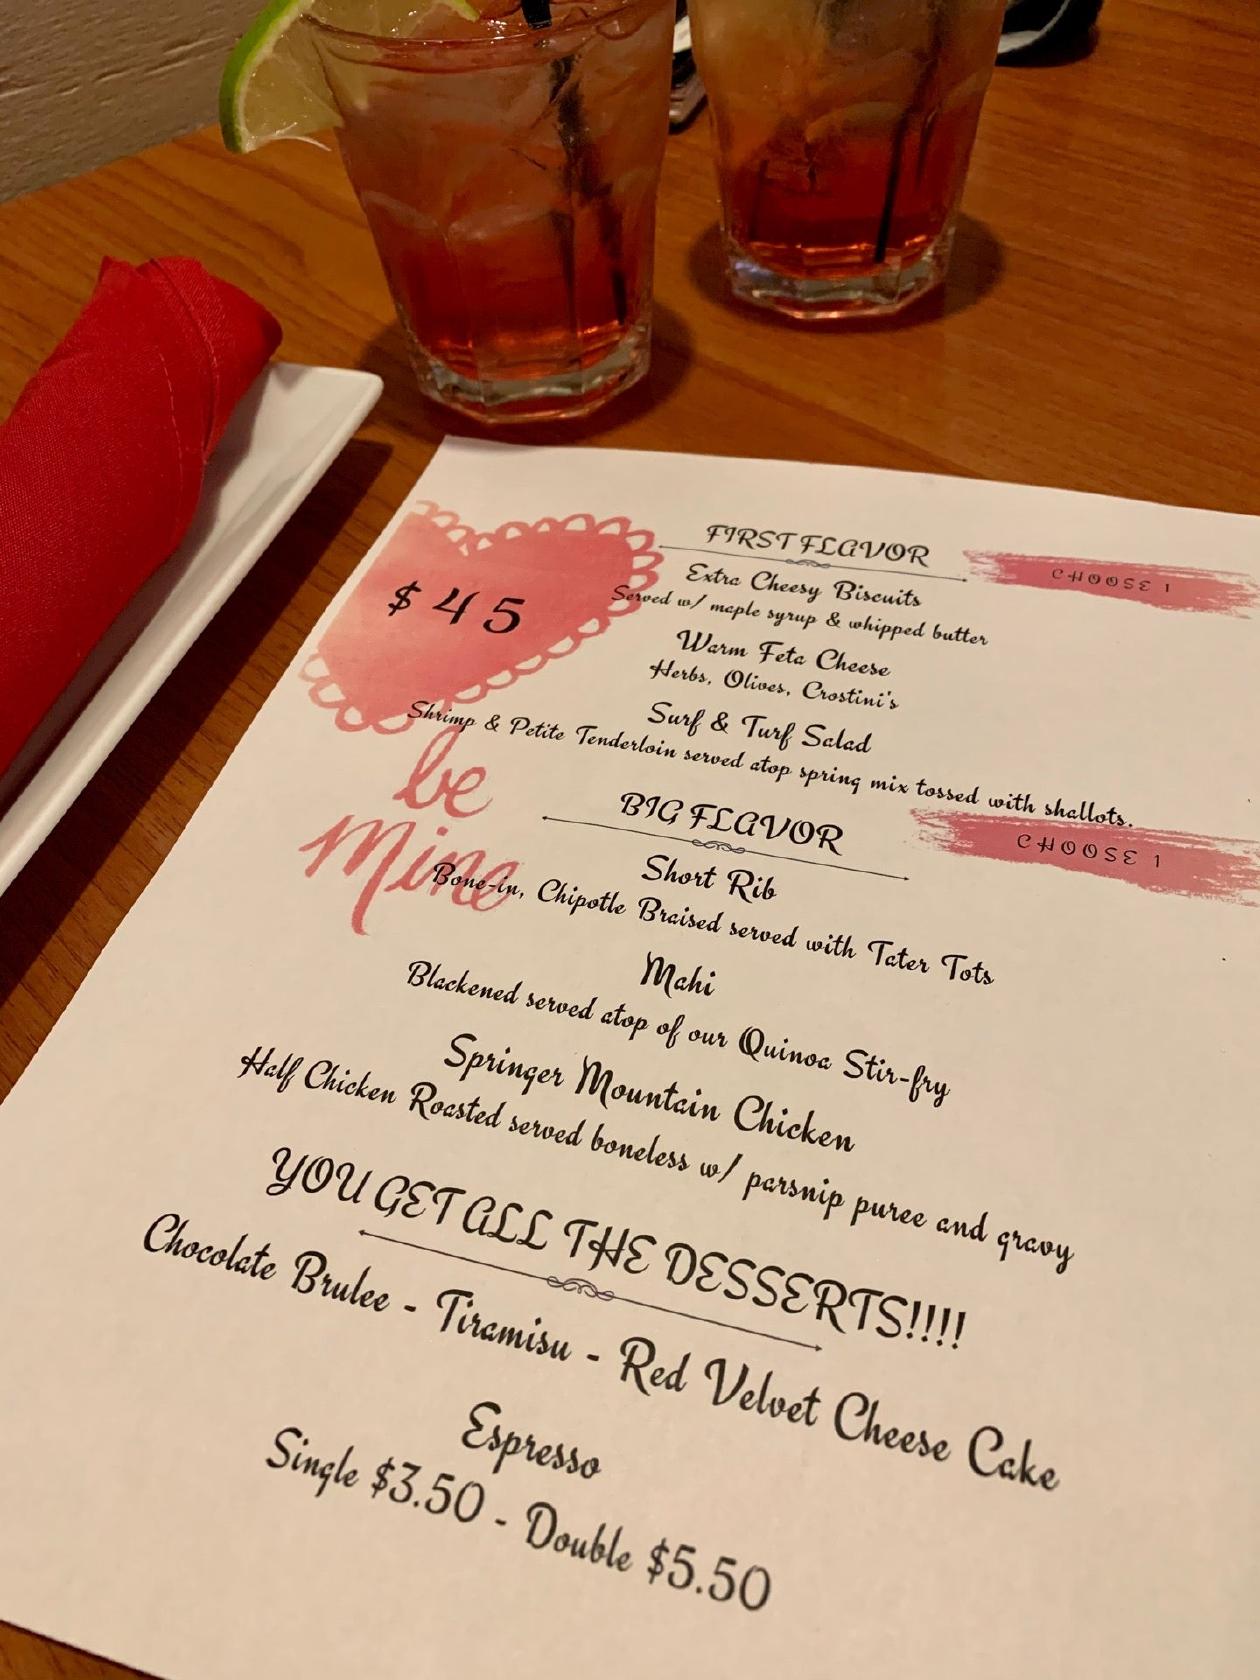 FIRST FLAVOR
CHOOSE 1
$45
Extra Cheesy Biscuits
Served w/ maple syrup & whipped butter
Warm Feta Cheese
Herbs, Olives, Crostini's
Surf & Turf Salad
Shrimp & Petite Tenderloin served atop spring mix tossed with shallots.
be
Mine
BIG FLAVOR
CHOOSE 1
Short Rib
Bone-in, Chipotle Braised served with Tater Tots
Mahi
Blackened served atop of our Quinoa Stir-fry
Springer Mountain Chicken
Half Chicken Roasted served boneless w/ parsnip puree and gravy
YOU GET ALL THE DESSERTS!!!!
Chocolate Brulee - Tiramisu - Red Velvet Cheese Cake
Espresso
Single $3.50 - Double $5.50